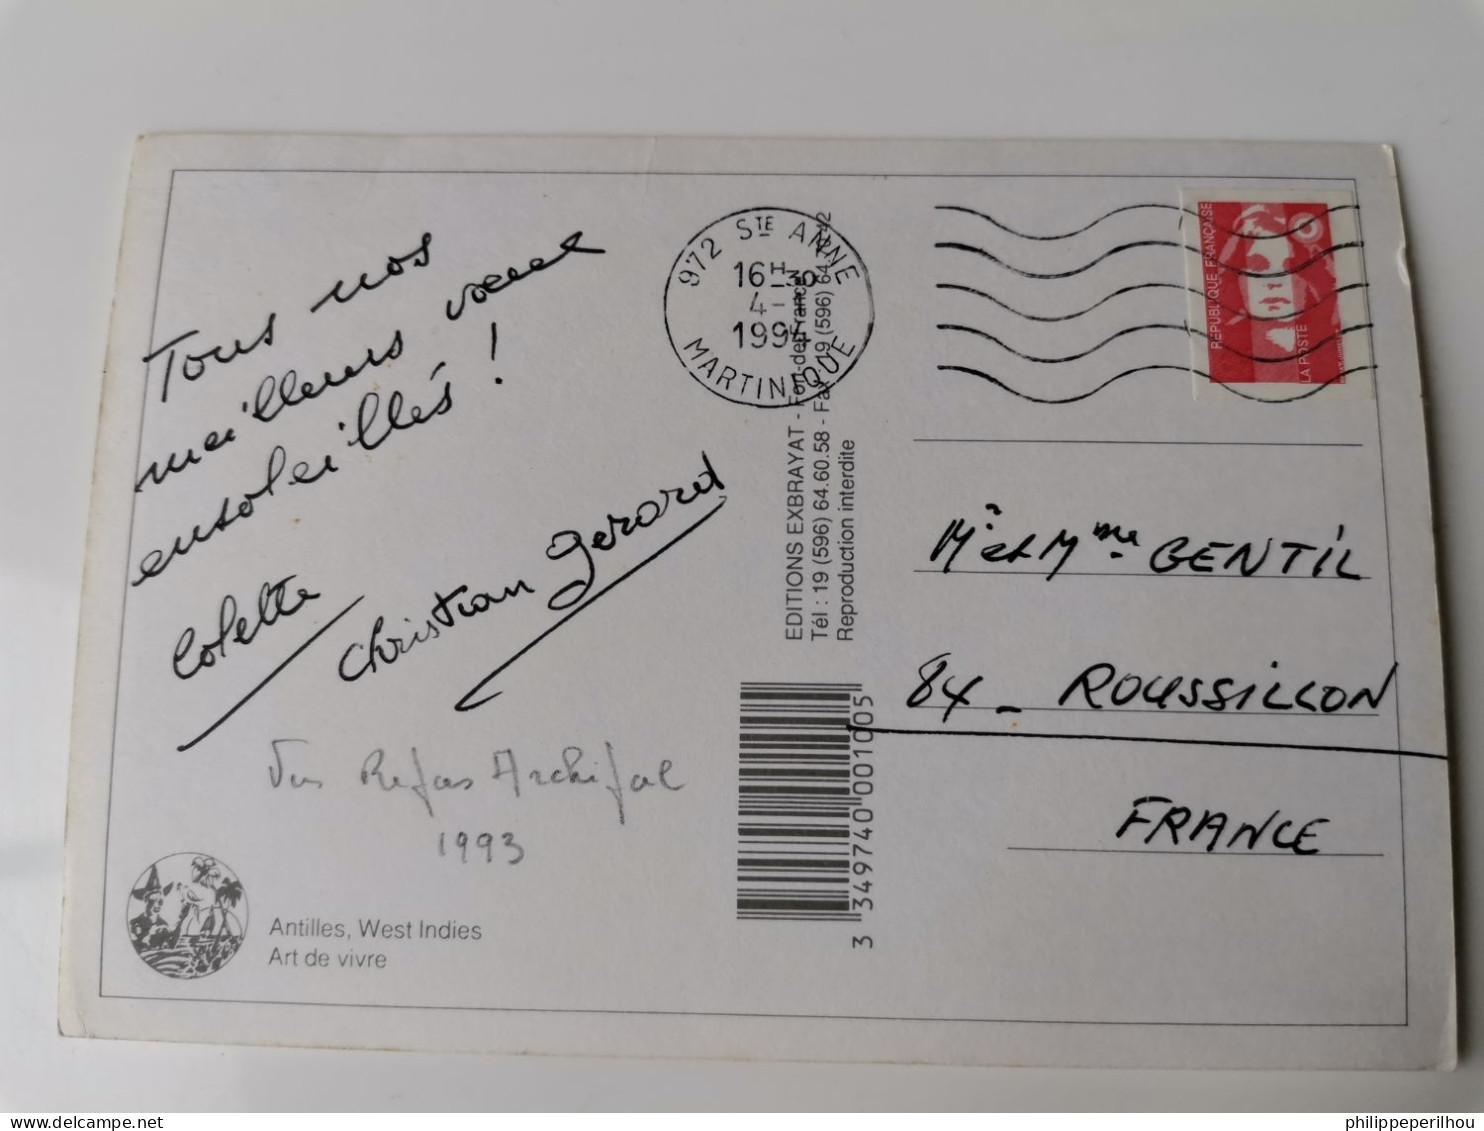 Tous nos
meilleurs voeux
ensoleillés !
Colette
Christian Gerard
1993
Antilles, West Indies
Art de vivre
972 STE ANNE
16H30
4-1
MARTINIQUE
EDITIONS EXBRAYAT - Fort-de-France
Tél : 19 (596) 64.60.58 - Fax 19 (596) 64
Reproduction interdite
3 349740 001005
RÉPUBLIQUE FRANÇAISE
LA POSTE
Mr et Mme GENTIL
84 - ROUSSILLON
FRANCE
philippeperilhou